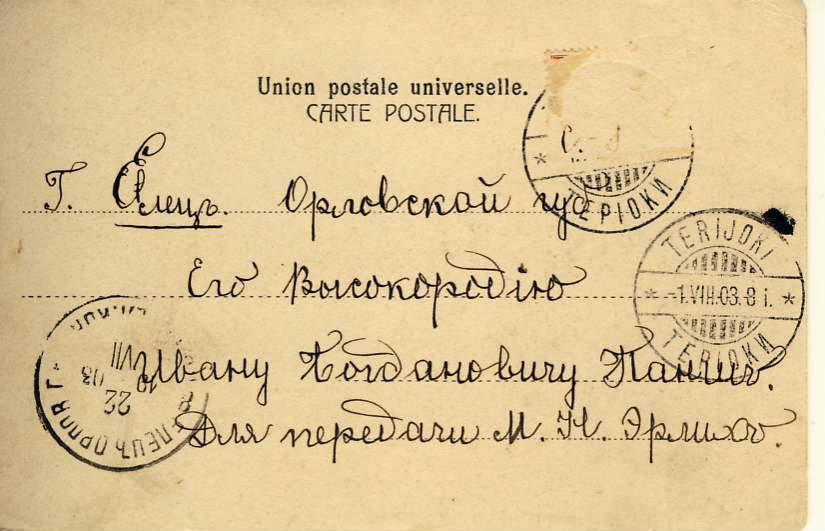 Union postale universelle.
CARTE POSTALE.
Г. Елецъ. Орловской губ
Его Высокородію
Ивану Богдановичу
Для передачи М. Н. Эрлихъ.
ТЕРІОКИ
TERIJOKI
-1.VIII.03.-8 i.
ТЕРІОКИ
ЕЛЕЦЪ ОРЛОВ. Г.
22
VII
03